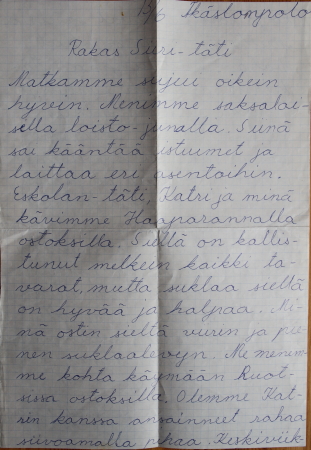 15/6 Äkäslompolo
Rakas Siiri-täti
Matkamme sujui oikein
hyvin. Menimme saksalai-
sella loisto-junalla. Siinä
sai kääntää istuimet ja
laittaa eri asentoihin.
Eskolan-täti, Katri ja minä
kävimme Haaparannalla
ostoksilla. Siellä on kallis-
tunut melkein kaikki ta-
varat, mutta suklaa siellä
on hyvää ja halpaa. Mi-
nä ostin sieltä suuren ja pie-
nen suklaalevyn. Me menim-
me kohta käymään Ruot-
sissa ostoksilla. Olemme Kat-
rin kanssa ansainneet rahaa
siivoamalla pihaa. Keskiviik-